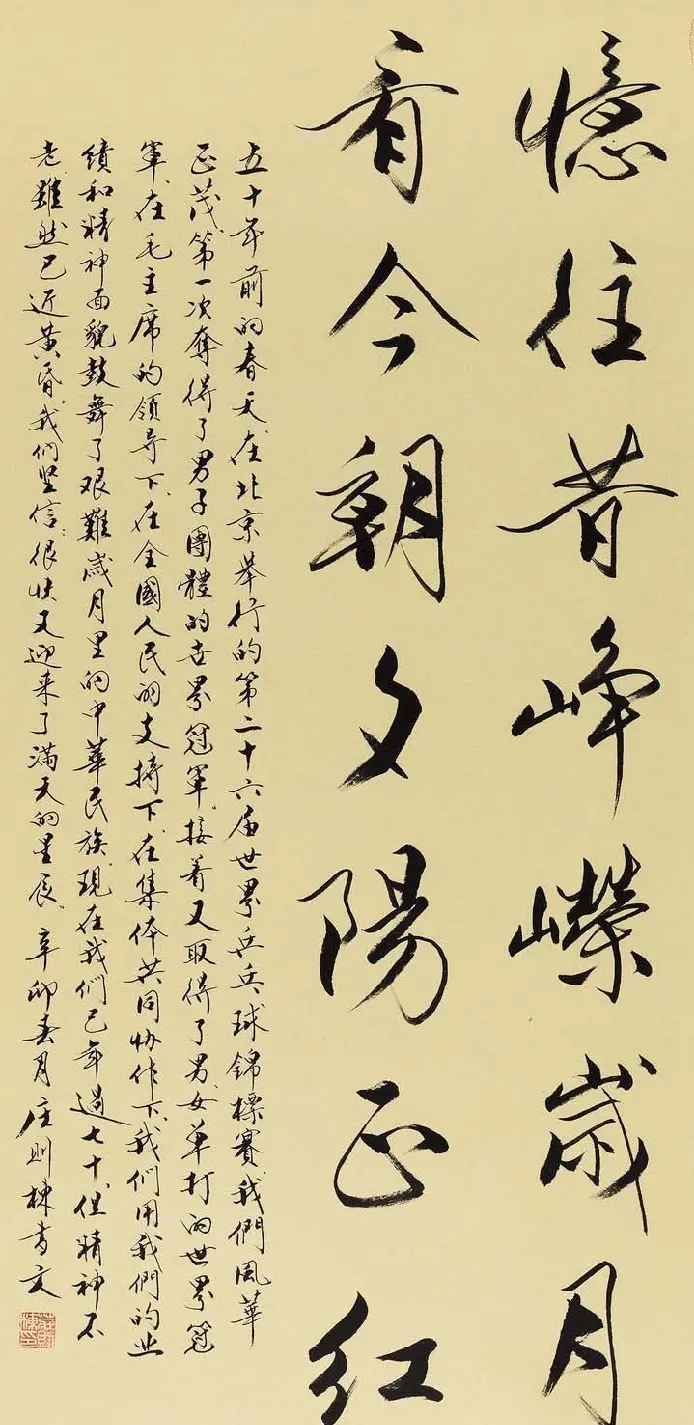 憶往昔峥嶸歲月
看今朝夕陽正红
五十年前的春天在北京举行的第二十六届世界乒乓球錦標賽我們風華
正茂第一次奪得了男子團體的世界冠軍接着又取得了男女单打的世界冠
軍在毛主席的领导下在全國人民的支持下在集体共同协作下我们用我們的业
績和精神面貌鼓舞了艰難歲月里的中華民族現在我們已年過七十但精神不
老雖然已近黄昏我们坚信很快又迎来了满天的星辰辛卯春月庄则棟書文